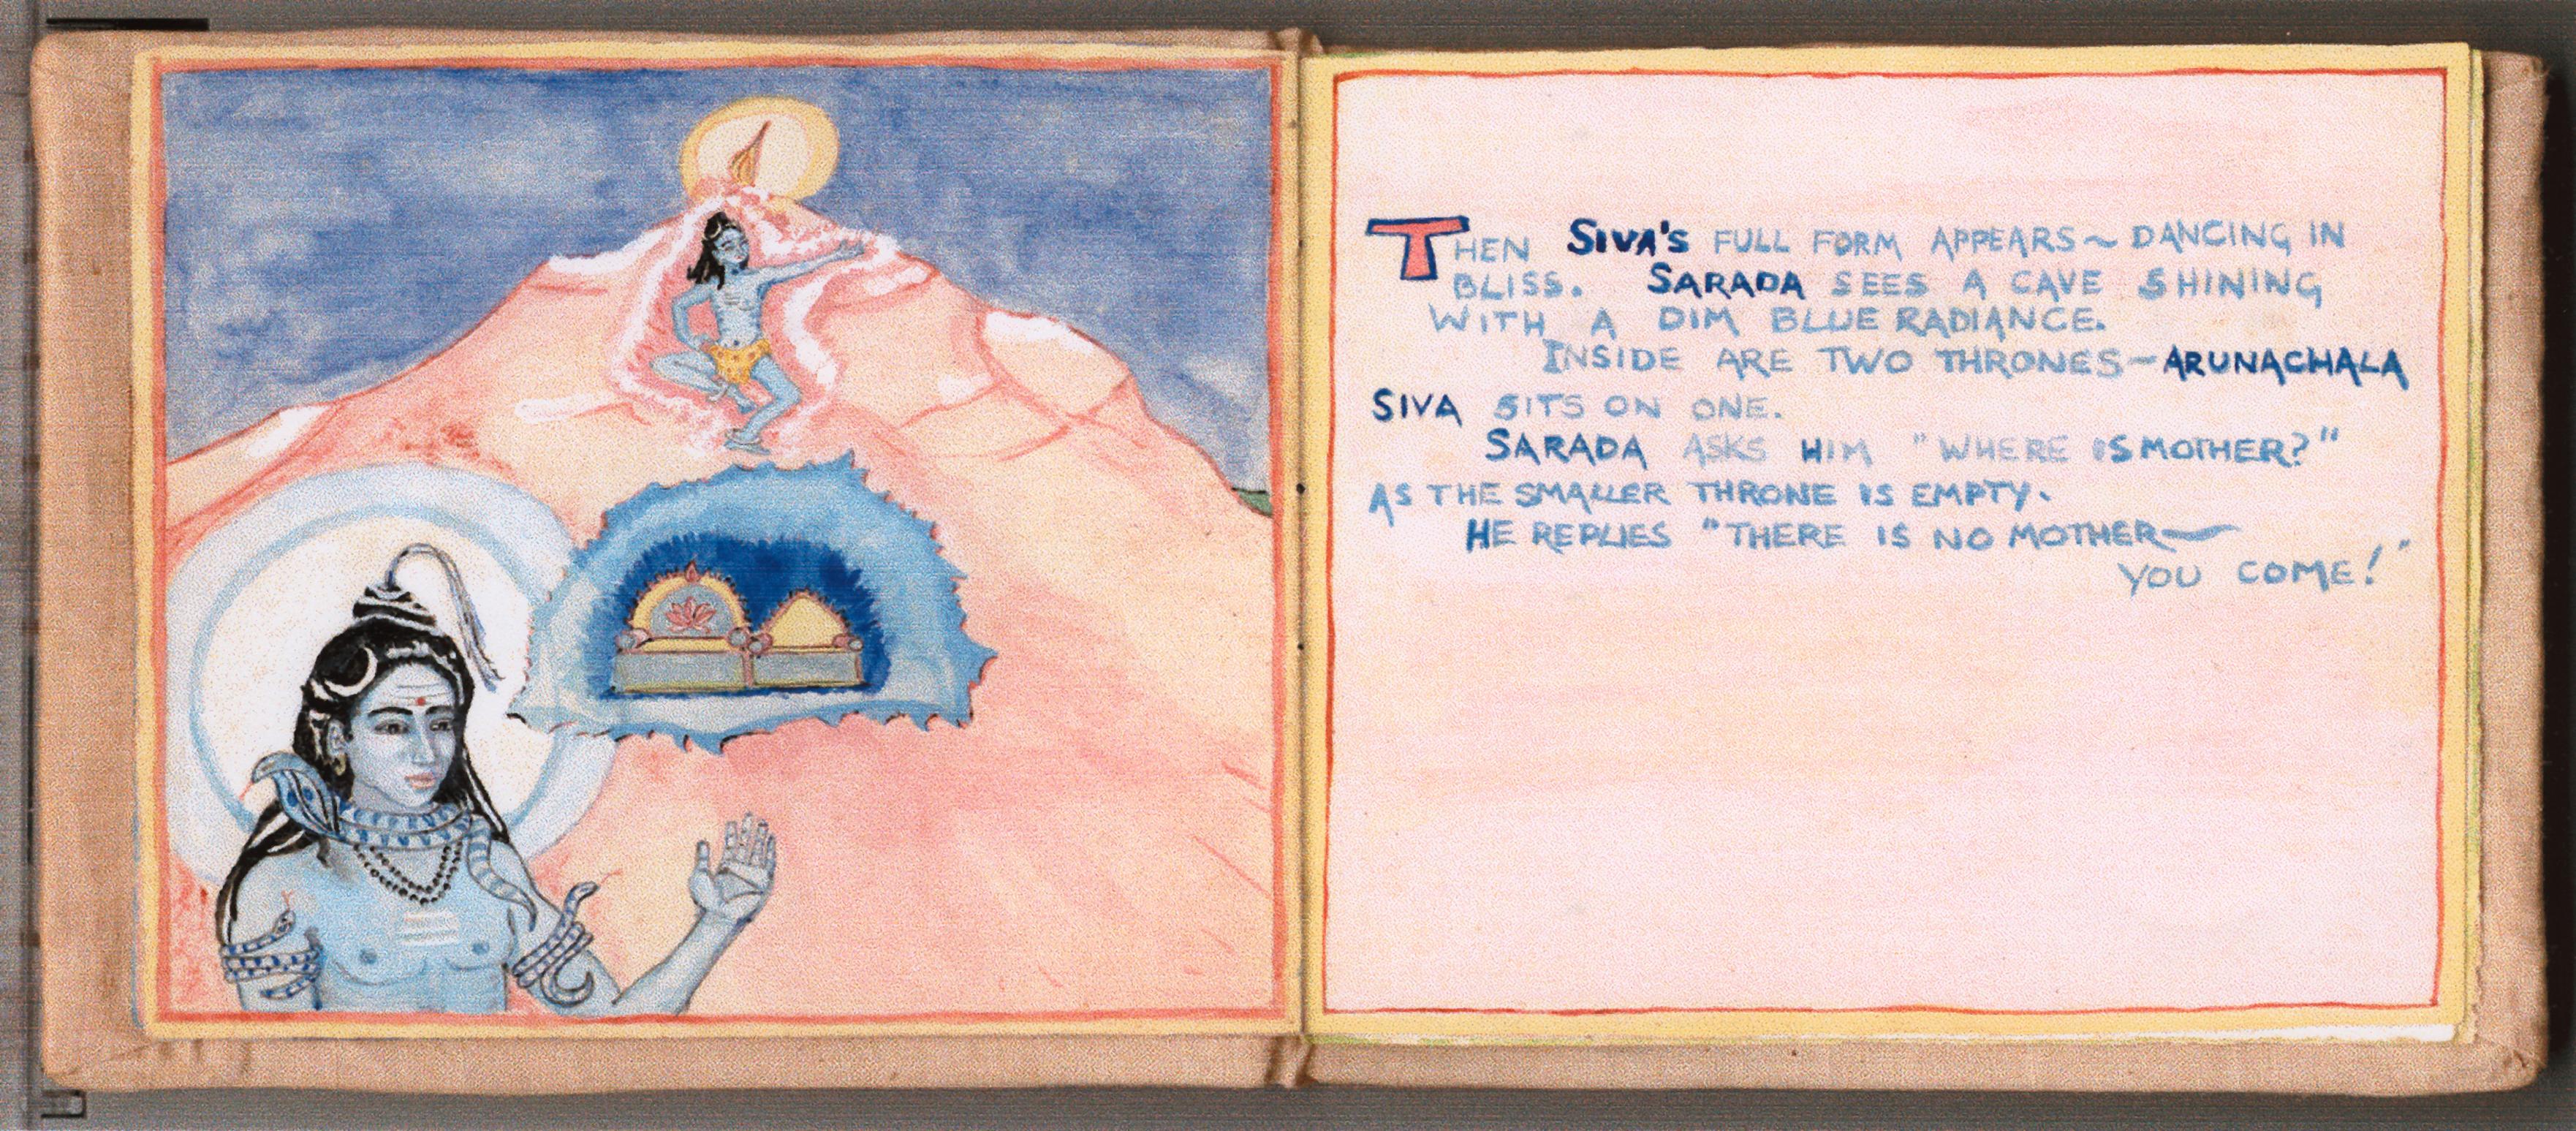 THEN SIVA'S FULL FORM APPEARS~DANCING IN
BLISS. SARADA SEES A CAVE SHINING
WITH A DIM BLUE RADIANCE.
INSIDE ARE TWO THRONES—ARUNACHALA
SIVA SITS ON ONE.
SARADA ASKS HIM "WHERE IS MOTHER?"
AS THE SMALLER THRONE IS EMPTY.
HE REPLIES "THERE IS NO MOTHER—
YOU COME!"